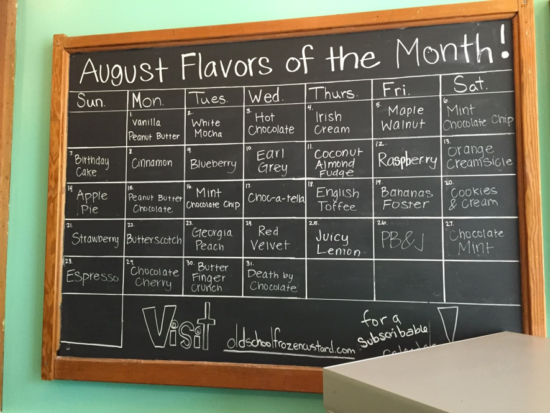 August Flavors of the Month!
Sun. Mon. Tues. Wed. Thurs. Fri. Sat.
1. Vanilla Peanut Butter
2. White Mocha
3. Hot Chocolate
4. Irish Cream
5. Maple Walnut
6. Mint Chocolate Chip
7. Birthday Cake
8. Cinnamon
9. Blueberry
10. Earl Grey
11. Coconut Almond Fudge
12. Raspberry
13. Orange Creamsicle
14. Apple Pie
15. Peanut Butter Chocolate
16. Mint Chocolate Chip
17. Choc-a-tella
18. English Toffee
19. Bananas Foster
20. Cookies & Cream
21. Strawberry
22. Butterscotch
23. Georgia Peach
24. Red Velvet
25. Juicy Lemon
26. PB&J
27. Chocolate Mint
28. Espresso
29. Chocolate Cherry
30. Butter Finger Crunch
31. Death by Chocolate
Visit
oldschoolfrozencustard.com
for a
subscribable